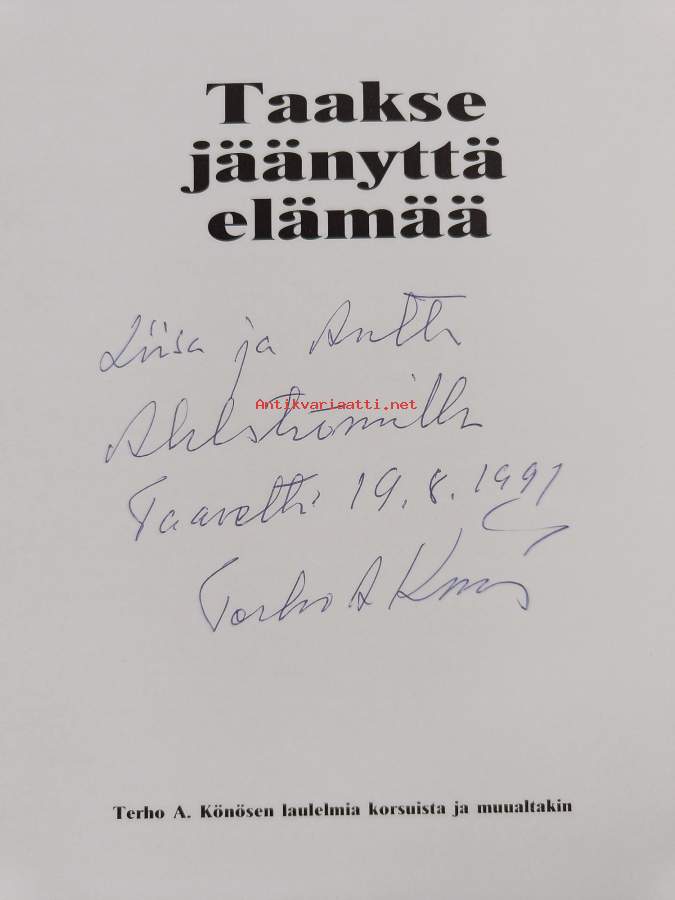 Taakse
jäänyttä
elämää
Liisa ja Antti
Antikvariaatti.net
Ahlströmille
Taavetti 19.8.1991
Terho A Könönen
Terho A. Könösen laulelmia korsuista ja muualtakin